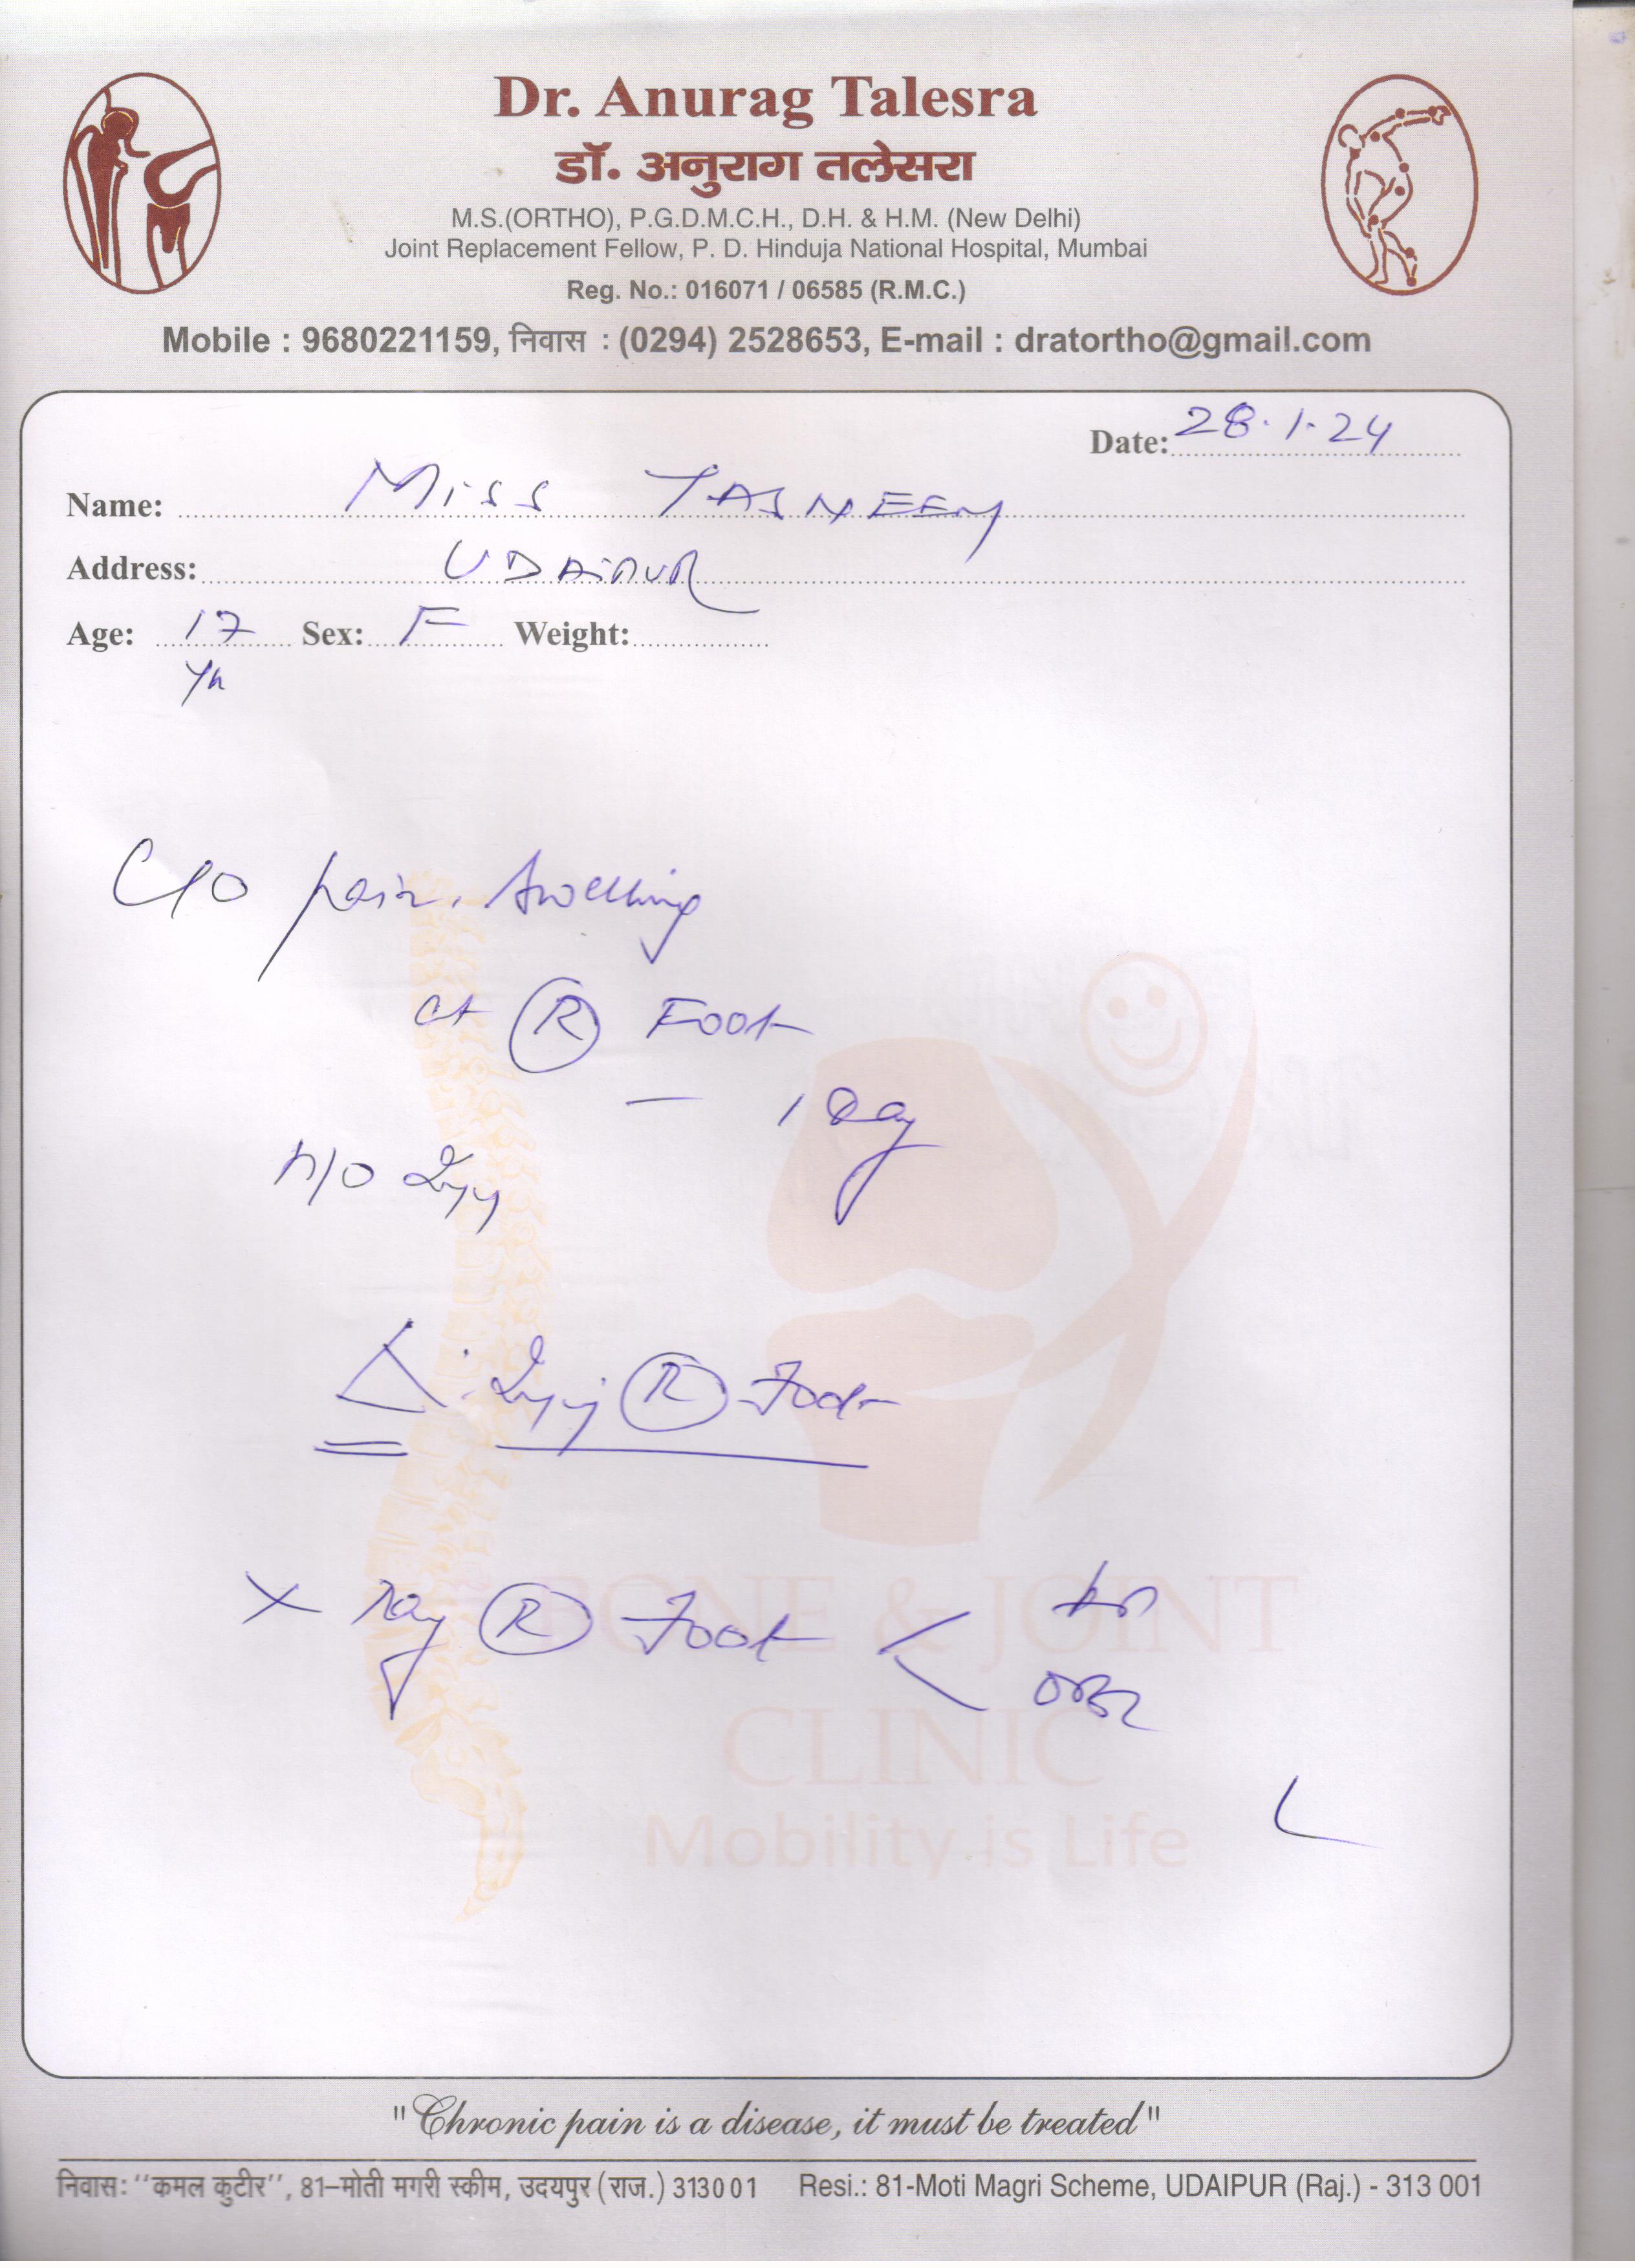 Dr. Anurag Talesra
डॉ. अनुराग तलेसरा
M.S.(ORTHO), P.G.D.M.C.H., D.H. & H.M. (New Delhi)
Joint Replacement Fellow, P. D. Hinduja National Hospital, Mumbai
Reg. No.: 016071 / 06585 (R.M.C.)
Mobile : 9680221159, निवास : (0294) 2528653, E-mail : dratortho@gmail.com
Date: 28.1.24
Name: MISS TASNEEM
Address: UDAIPUR
Age: 17 Sex: F Weight:
Yr
C/O pain, swelling
at R Foot
– 1 Day
H/O Injury
Δ: Injury R Foot
X Ray R Foot < AP
OBL
BONE & JOINT
CLINIC
Mobility is Life
"Chronic pain is a disease, it must be treated"
निवास: ‘‘कमल कुटीर’’, 81–मोती मगरी स्कीम, उदयपुर (राज.) 313001 Resi.: 81-Moti Magri Scheme, UDAIPUR (Raj.) - 313 001